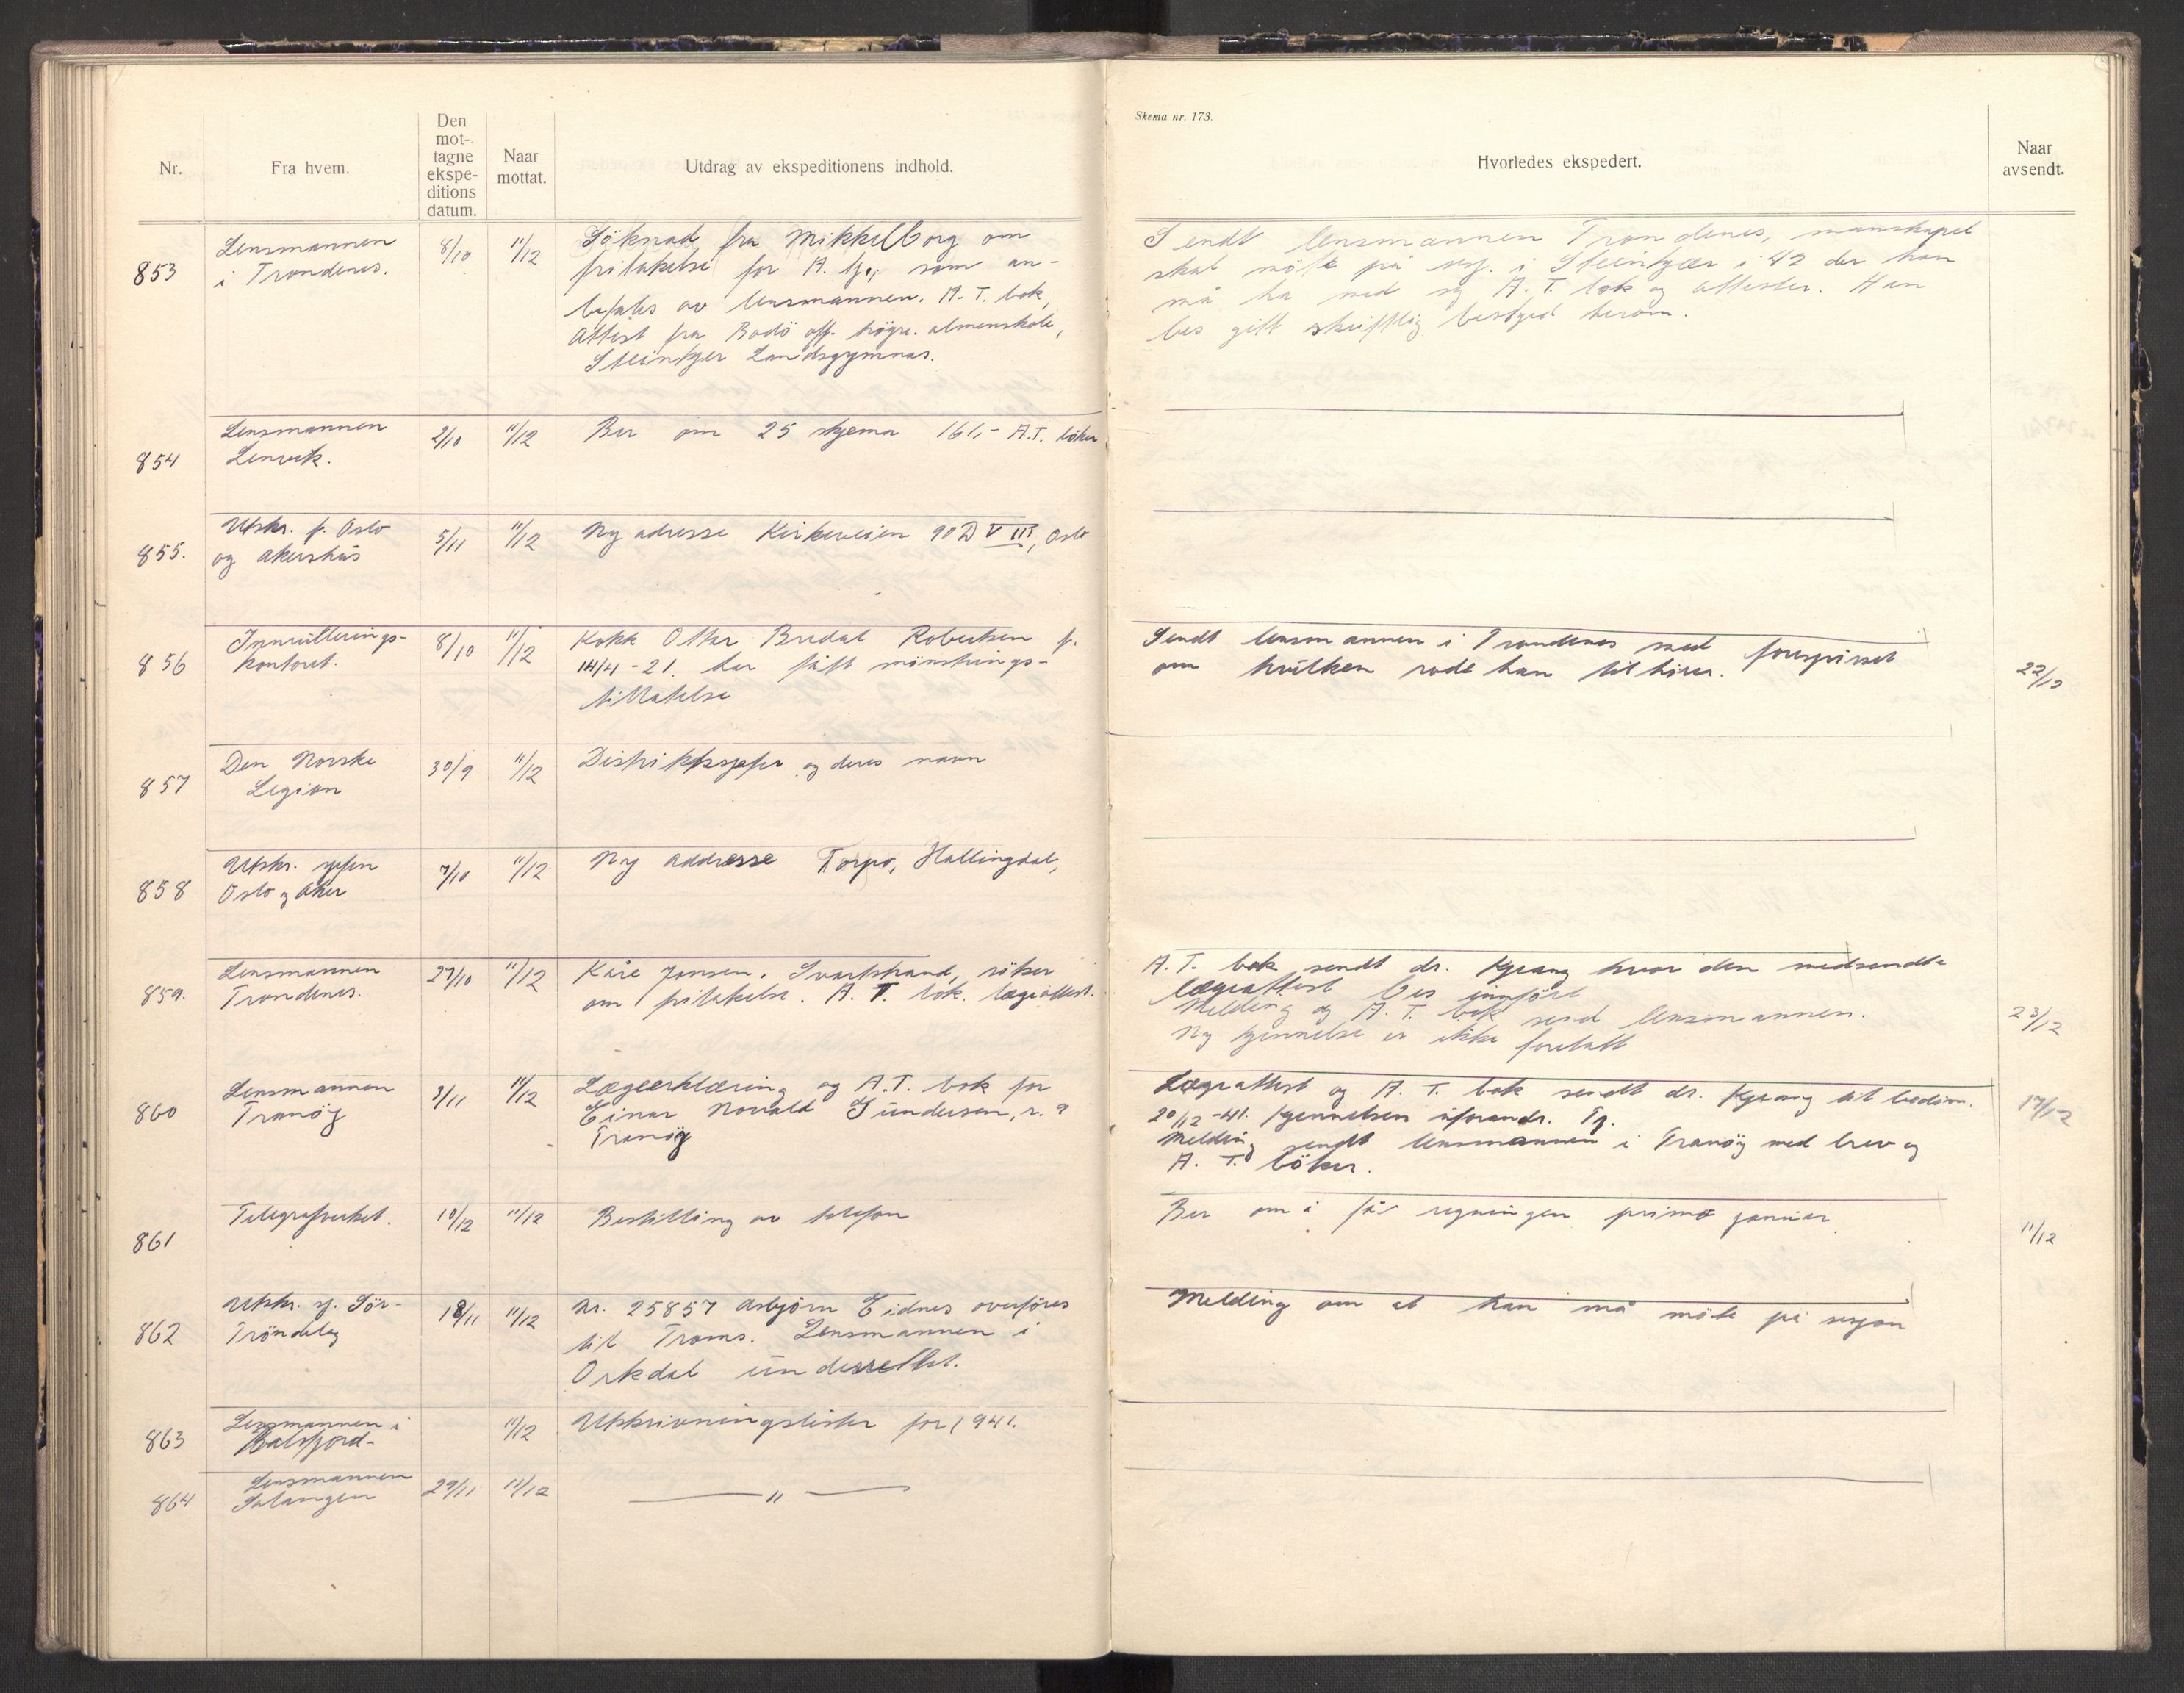 Nr.
Fra hvem.
Den
mot-
tagne
ekspe-
ditions
datum.
Naar
mottat.
Utdrag av ekspeditionens indhold.
Skema nr. 173.
Hvorledes ekspedert.
Naar
avsendt.
853
Lensmannen
i Trondenes.
8/10
11/12
Söknad fra Mikkelborg om
fritakelse for A. tj., som an-
befales av lensmannen. A.T. bok,
Attest fra Bodö off. högre. almenskole,
Steinkjer Landsgymnas.
Sendt lensmannen Trondenes, manskapet
skal möte på sesj. i Steinkjær i 42 der han
må ha med sig A.T. bok og attester. Han
bes gitt skriftlig beskjed herom.
854
Lensmannen
Lenvik.
2/10
11/12
Ber om 25 skjema 161,- A.T. böker
855.
Utskr. f. Oslo
og Akershus
5/11
11/12
Ny adresse Kirkeveien 90 D VIII, Oslo
856
Innrullerings-
kontoret.
8/10
11/12
Kokk Ottar Bredal Robertsen f.
14/4-21. har fått mönstrings-
tillatelse
Sendt lensmannen i Trondenes med forespørsel
om hvilken rode han tilhører.
22/12
857
Den Norske
Legion
30/9
11/12
Distriktssjefer og deres navn
858
Utskr. sjefen
Oslo og Aker
7/10
11/12
Ny addresse Torpo, Hallingdal,
859.
Lensmannen
Trondenes.
27/10
11/12
Kåre Jensen, Svartstrand, söker
om fritakelse. A.T. bok. lægeattest.
A.T. bok sendt dr. Kjrang hvor den medsendte
lægeattest bes innfört
Melding og A.T. bok send lensmannen.
Ny kjennelse er ikke foretatt
23/12
860
Lensmannen
Tranöy
3/11
11/12
Lægeerklæring og A.T. bok for
Einar Norvald Gundersen, r. 9
Tranöy
Lægeattest og A.T. bok sendt dr. Kjrang til bedöm.
20/12-41. Kjennelsen uforandr. Tj.
Melding sendt lensmannen i Tranöy med brev og
A.T. böker.
17/12
861
Telegrafverket.
10/12
11/12
Bestilling av telefon
Ber om å få regningen primo januar.
11/12
862
Utskr. sj. Sör-
Tröndelag
18/11
11/12
Nr. 25857 Asbjörn Eidnes overföres
til Troms. Lensmannen i
Orkdal underrettet.
Melding om at han må möte på sesjon
863
Lensmannen i
Balsfjord-
11/12
Utskrivningslister for 1941.
864
Lensmannen
Salangen
29/11
11/12
— " —